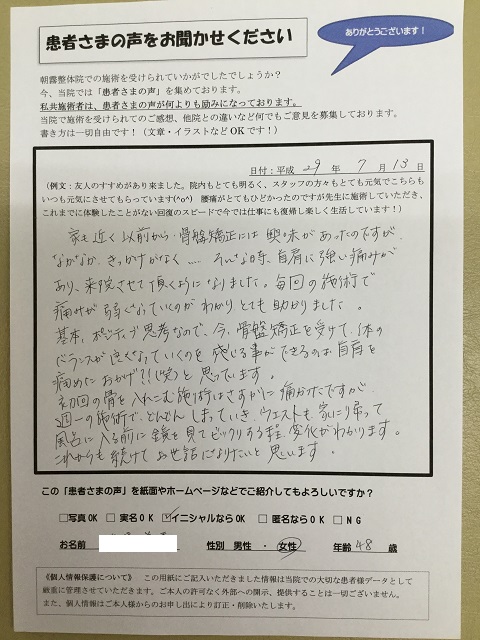 患者さまの声をお聞かせください
ありがとうございます！
朝霧整体院での施術を受けられていかがでしたでしょうか？
今、当院では「患者さまの声」を集めております。
私共施術者は、患者さまの声が何よりも励みになっております。
当院で施術を受けられてのご感想、他院との違いなど何でもご意見を募集しております。
書き方は一切自由です！（文章・イラストなどOKです！）
日付：平成 29 年 7 月 13 日
（例文：友人のすすめがあり来ました。院内もとても明るく、スタッフの方々もとても元気でこちらも
いつも元気にさせてもらっています(^o^) 腰痛がとてもひどかったのですが先生に施術していただき、
これまでに体験したことがない回復のスピードで今では仕事にも復帰し楽しく生活しています！）
家も近く以前から骨盤矯正には興味があったのですが、
なかなか、きっかけがなく…. そんな時、首肩に強い痛みが
あり、来院させて頂くようになりました。毎回の施術で
痛みが弱くなっていくのがわかりとても助かりました。
基本、ポジティブ思考なので、今、骨盤矯正を受けて、体の
バランスが良くなっていくのを感じる事ができるのは首肩を
痛めたおかげ?!(笑)と思っています。
初回の骨を入れこむ施術はさすがに痛かったですが、
週一の施術で、どんどんしまっていき、ウエストも、家に帰って
風呂に入る前に鏡を見てビックリする程、変化がわかります。
これからも続けてお世話になりたいと思います。
この「患者さまの声」を紙面やホームページなどでご紹介してもよろしいですか？
□写真OK □実名OK ☑イニシャルならOK □匿名ならOK □NG
お名前 性別 男性 ・ 女性 年齢 48 歳
《個人情報保護について》 この用紙にご記入いただきました情報は当院での大切な患者様データとして
厳重に管理させていただきます。ご本人の許可なく外部への開示、提供することは一切ございません。
また、個人情報はご本人様からのお申し出により訂正・削除いたします。